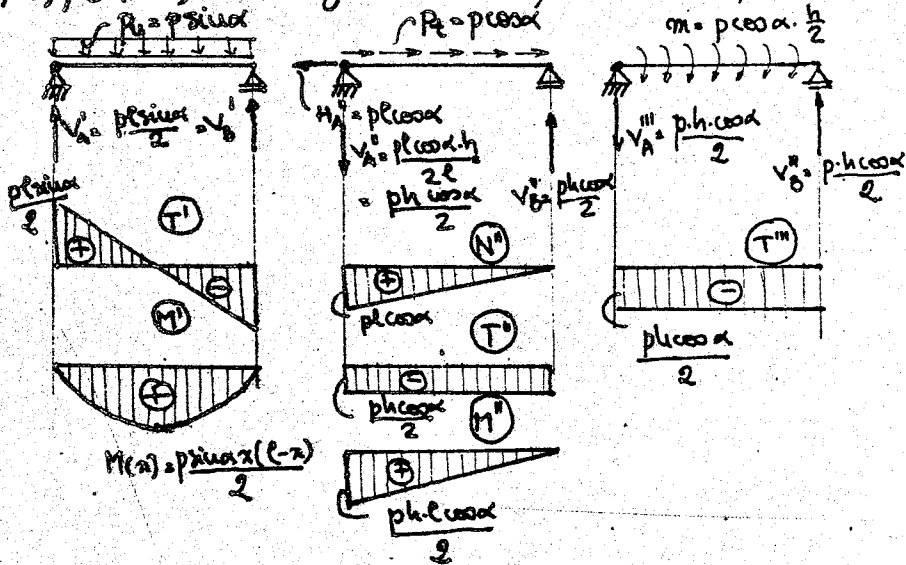 Pₙ = p sinα
V'_A = plsinα/2 = V'_B
plsinα/2
T'
+
−
M'
+
M(x) = p sinα x(l-x)/2
P_t = p cosα
H''_A = plcosα
V''_A = plcosα·h/2l
= ph cosα/2
V''_B = phcosα/2
N''
+
plcosα
T''
−
phcosα/2
M''
+
ph·lcosα/2
m = p cosα·h/2
V'''_A = p·h·cosα/2
V'''_B = p·hcosα/2
T'''
−
phcosα/2